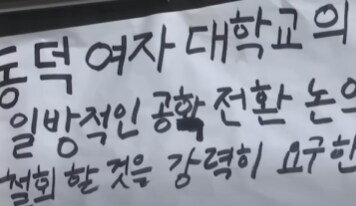 동덕 여자 대학교의
일방적인 공학 전환 논의
철회 할 것을 강력히 요구한